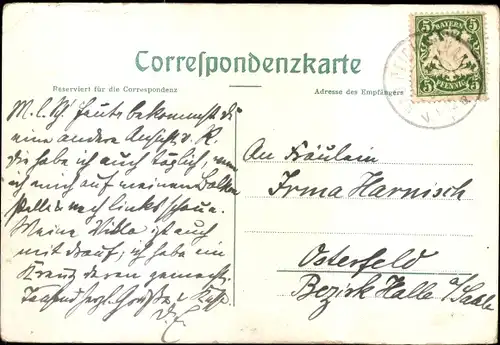 Correspondenzkarte
Reserviert für die Correspondenz
Adresse des Empfängers
5 BAYERN 5
5 PFENNIG 5
M. l. W! Heute bekommst du
eine andere Ansicht v. K.
die habe ich auch täglich, wenn
ich mich auf meinen Balkon
stelle & nach links schaue.
Meine Villa ist auch
mit drauf; ich habe ein
Kreuz daran gemacht.
Tausend herzl. Grüße & Kuß
D. E.
An Fräulein
Irma Harnisch
Osterfeld
Bezirk Halle a/Saale